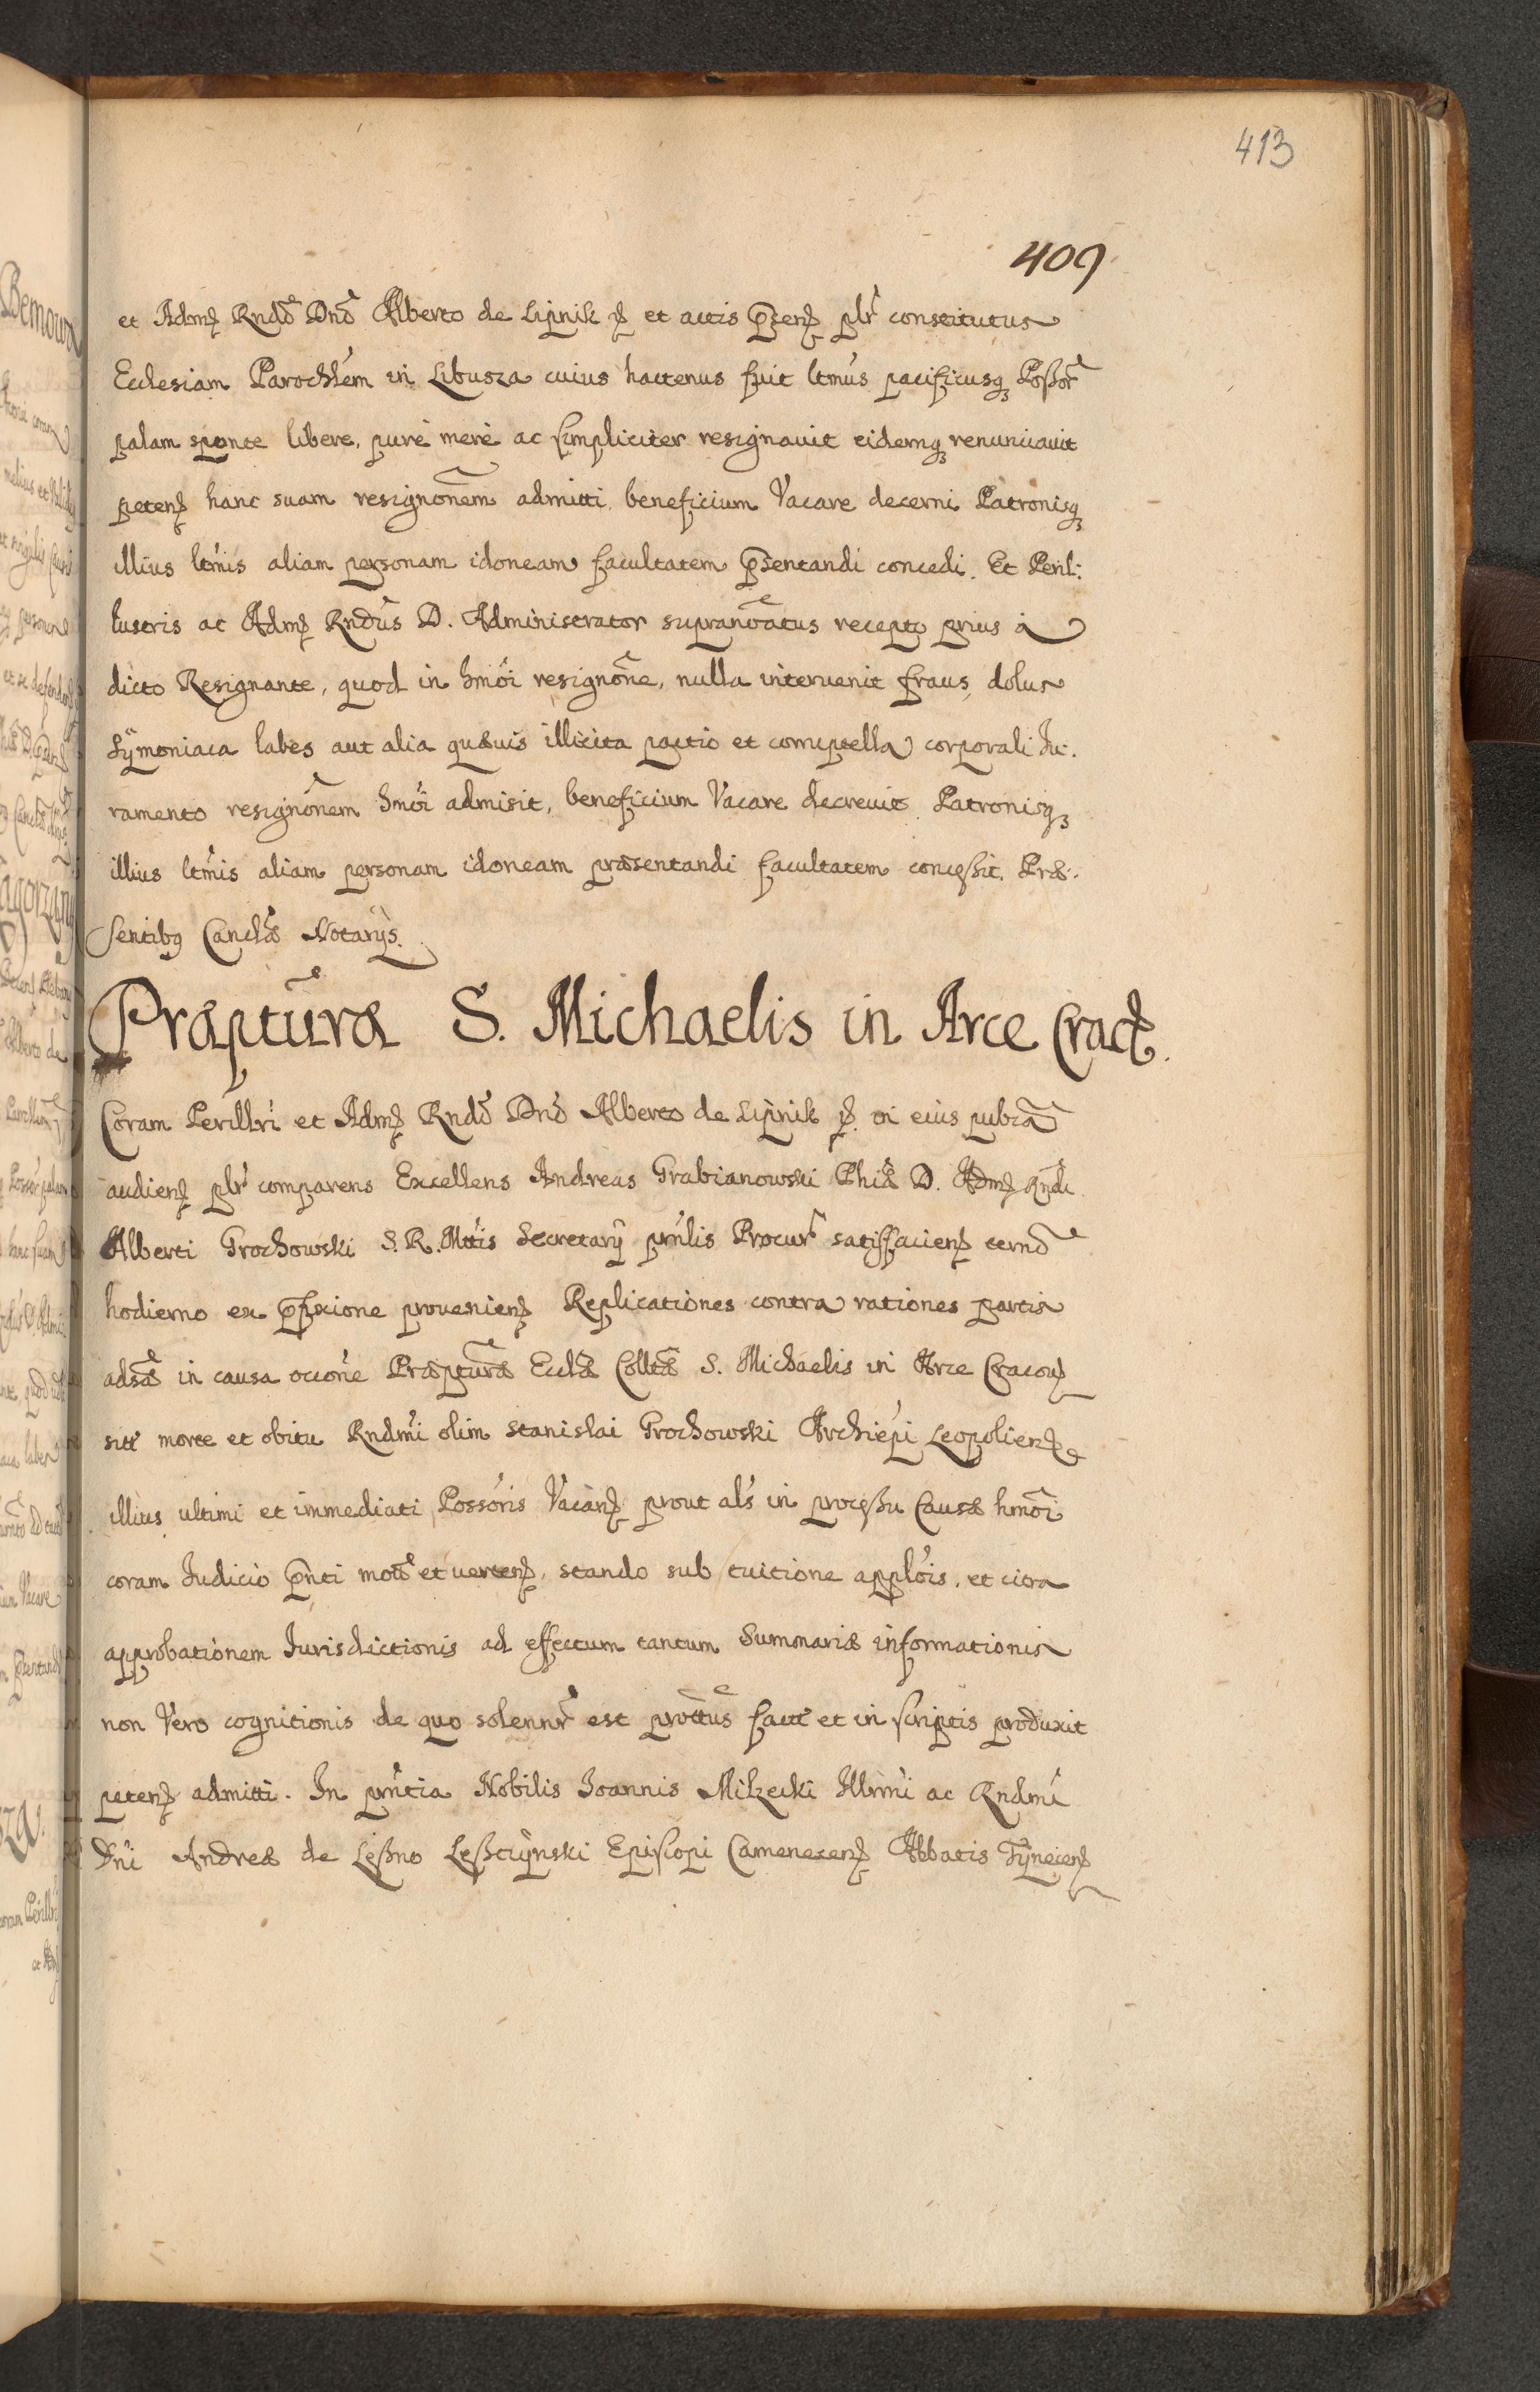 413
409
et Adm. Rndo Dno Alberto de Lipnik p. et actis pnsen. plr constitutus
Ecclesiam Parochlem in Libusza cuius hactenus fuit ltmus pacificusq Possor
palam sponte libere, pure mere ac simpliciter resignauit eidemq renunciauit
peten. hanc suam resignonem admitti beneficium Vacare decerni Patronisq
illius ltmis aliam personam idoneam facultatem psentandi concedi. Et Peril:
lustris ac Adm. Rndus D. Administrator supranoiatus recepto prius à
dicto Resignante, quod in hmoi resignone, nulla interuenit fraus, dolus
Sÿmoniaca labes aut alia quæuis illicita pactio et corruptella corporali Iu:
ramento resignonem hmoi admisit, beneficium Vacare decreuit Patronisq
illius ltmis aliam personam idoneam præsentandi facultatem concessit. Præ:
sentibq Canclæ Notarÿs.
Præpturæ S. Michaelis in Arce Crac.
Coram Perillri et Adm. Rndo Dno Alberto de Lipnik p. in eius publca
audien. plr comparens Excellens Andreas Grabianowski Phiæ D. Adm. Rndi
Alberti Grochowski S. R. Mttis Secretarÿ prnlis Procur satisfacien. termo
hodierno ex pfixione prouenien. Replicationes contra rationes partis
adsæ in causa occione Præpturæ Ecclæ Colltæ S. Michaelis in Arce Cracou.
siue morte et obitu Rndmi olim Stanislai Grochowski Archiepi Leopolien.
illius ultimi et immediati Possoris Vacan. prout als in processu Causæ hmoi
coram Iudicio pnti mota et uerten. stando sub tuitione applois. et citra
approbationem Iurisdictionis ad effectum tantum Summariæ informationis
non Vero cognitionis de quo solennr est prottus facit et in scriptis produxit
peten. admitti. In pntia Nobilis Ioannis Milzecki Illrmi ac Rndmi
Dni Andreæ de Leßno Leßczÿnski Episcopi Camenecen. Abbatis Tÿnecen.